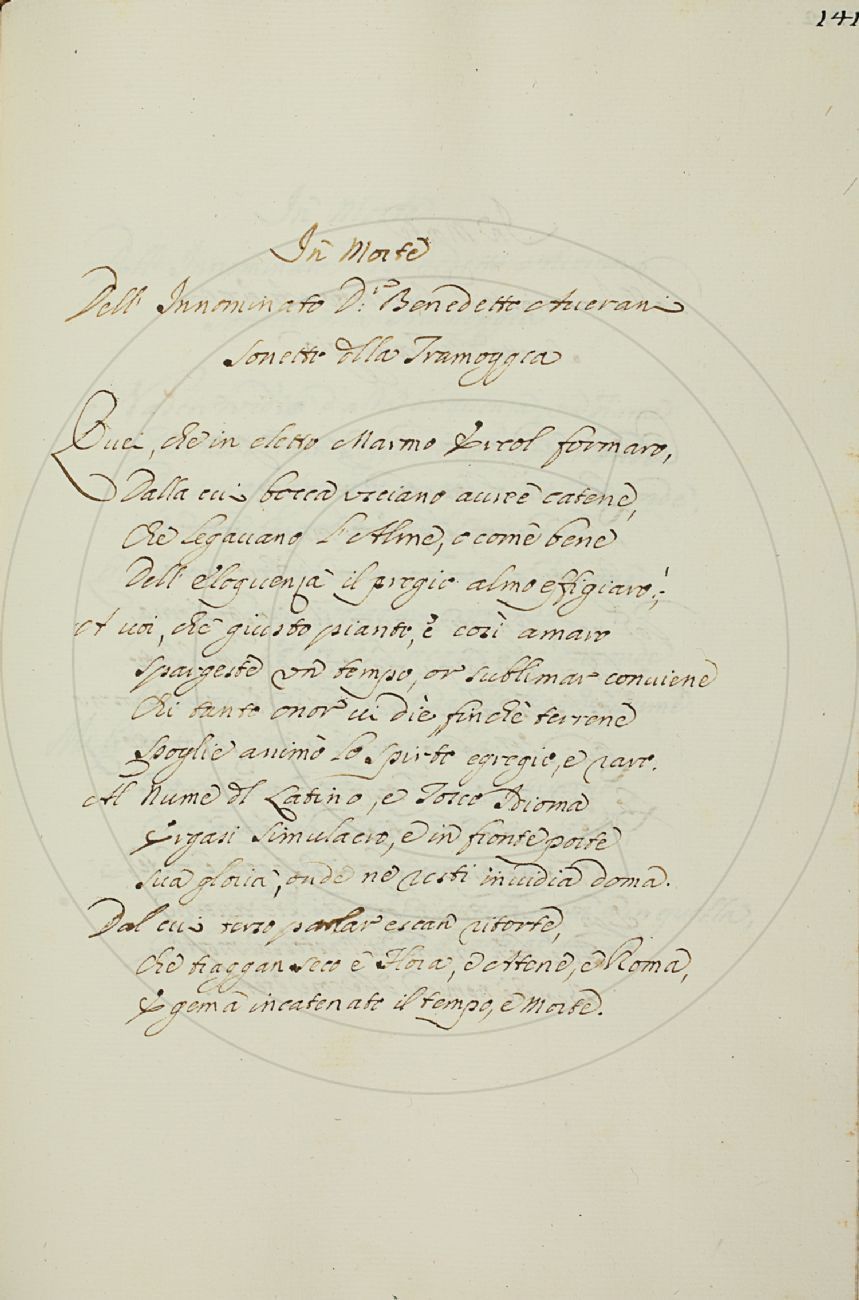 141
In Morte
Dell' Innominato D.r Benedetto Averani
Sonetto della Tramoggia
Quei, che in eletto Marmo Ercol formaro,
Dalla cui bocca usciano auree catene,
Che legavano l'Alme, o come bene
Dell' eloquenza il pregio almo effigiaro!;
A voi, che giusto pianto, e così amaro
spargeste un tempo, or sublimar conviene
Chi tanto onor vi diè finchè terrene
Spoglie animò lo spirto egregio, e raro.
Al Nume del Latino, e Tosco Idioma
Ergasi simulacro, e in fronte porte
sua gloria, onde ne resti invidia doma.
Dal cui terso parlar escan ritorte,
che traggan seco e Flora, e Atene, e Roma,
E gema incatenato il tempo, e Morte.